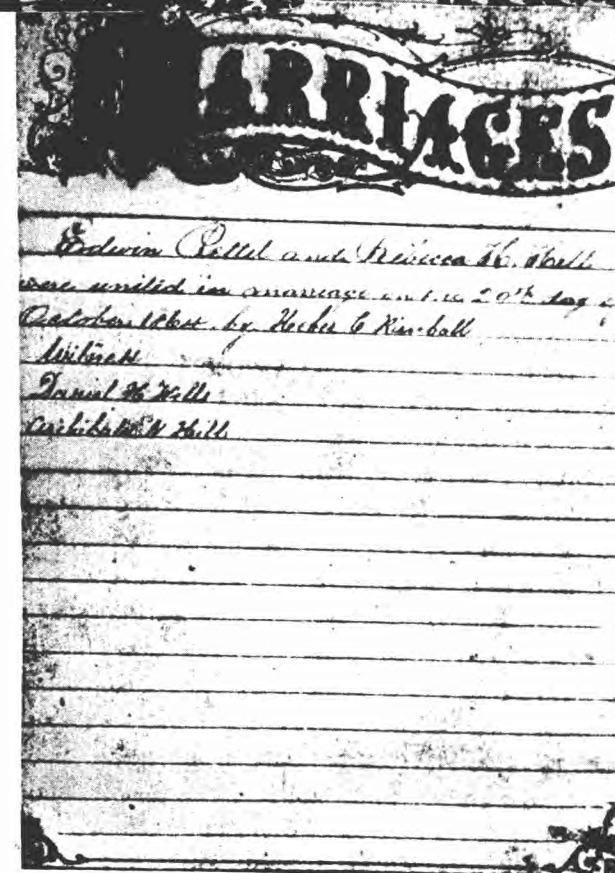 MARRIAGES
Edwin Pettet and Rebecca H. Hill
were united in marriage on the 20th day of
October by Heber C Kimball
Witness
Daniel H Wells
Archibald N Hill